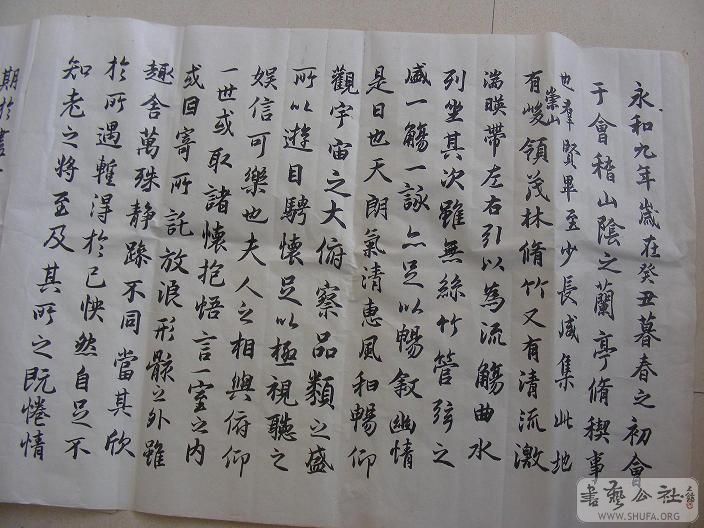 永和九年歲在癸丑暮春之初會
于會稽山陰之蘭亭脩稧事
也羣賢畢至少長咸集此地
有崇山峻領茂林脩竹又有清流激
湍暎帶左右引以為流觴曲水
列坐其次雖無絲竹管弦之
盛一觴一詠亦足以暢敘幽情
是日也天朗氣清惠風和暢仰
觀宇宙之大俯察品類之盛
所以遊目騁懷足以極視聽之
娛信可樂也夫人之相與俯仰
一世或取諸懷抱悟言一室之內
或因寄所託放浪形骸之外雖
趣舍萬殊静躁不同當其欣
於所遇暫得於己怏然自足不
知老之將至及其所之既惓情
期於盡
書藝公社
WWW.SHUFA.ORG